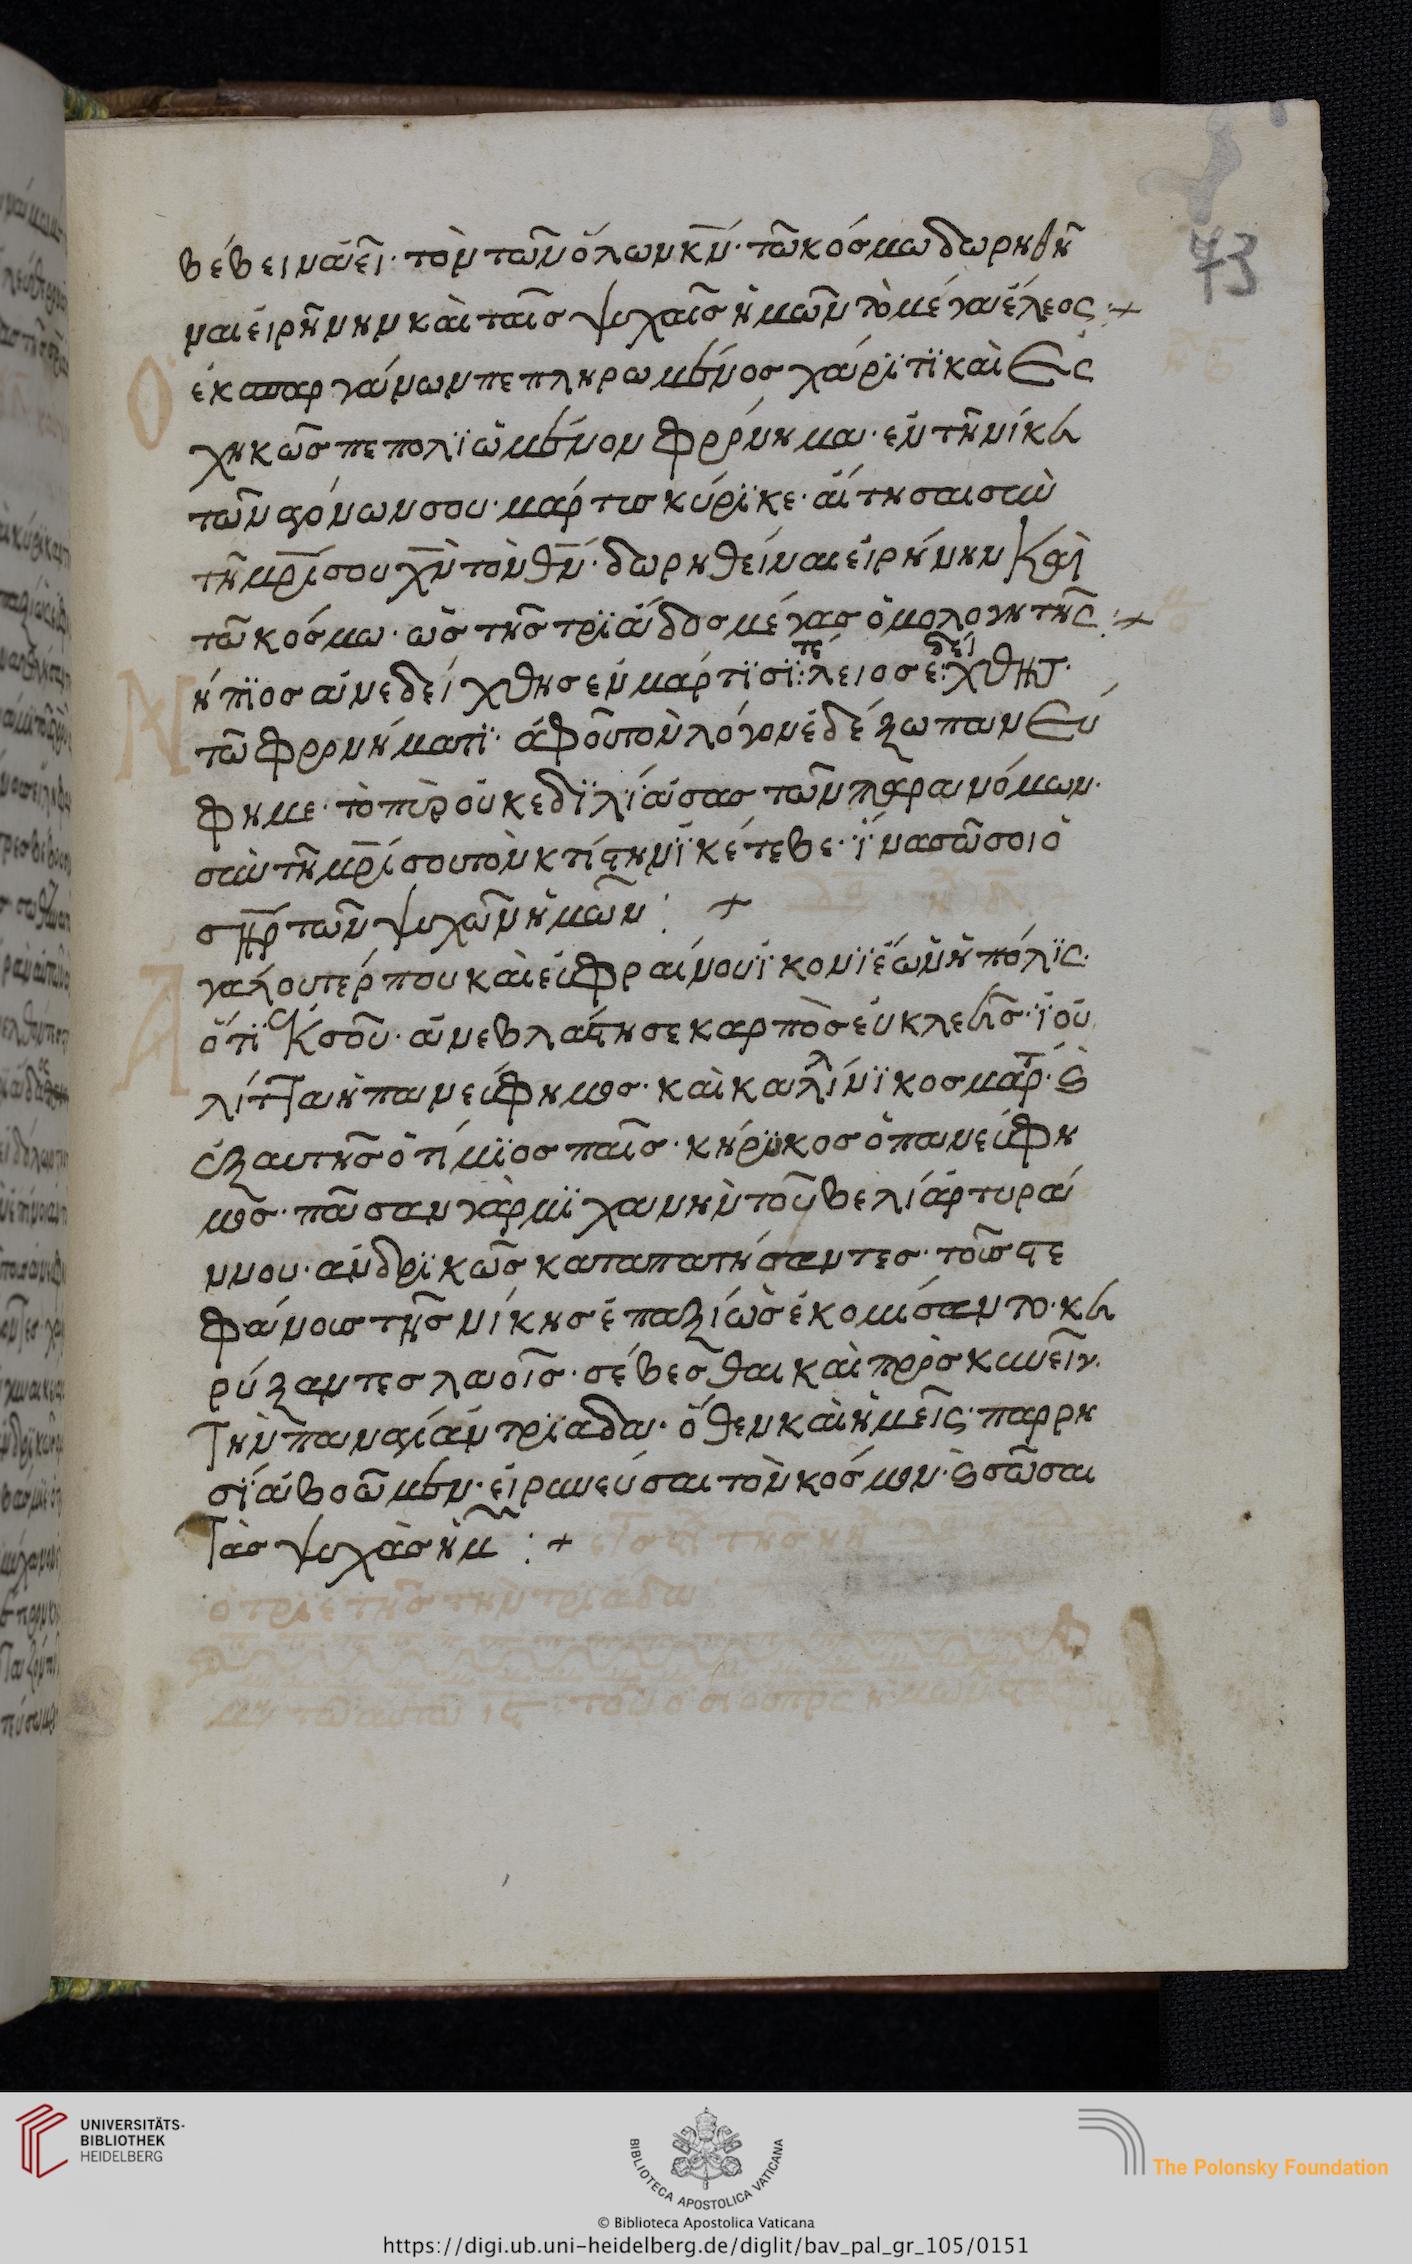 73
βέβει νἀεῖ· τὸν τῶν ὅλων κν̅· τῶ κόσμω δωρηθῆ
ναι εἰρῆνην καὶ ταῖσ ψυχαῖσ ἡμῶν τὸ μέγα ἔλεος :+
Ὁ ἐκ σπαργάνων πεπληρωμένοσ χάρϊτϊ καὶ ἐς
χηκὼσ πεπολϊὠμένον φρόνημα· ἐν τῆ νίκει
τῶν ἀγόνων σου· μάρτυσ κύρϊκε· αἴτησαι σὺν
τῆ μρ̅ί σου χν̅ τὸν θν̅· δωρηθεῖναι εἰρήνην καὶ
τῶ κόσμω· ὡσ τῆσ τρϊάδοσ μέγασ ὁμολογητῆς :+
Νήπϊοσ ἀνεδείχθησ ἐν μάρτϊσϊ: τέλειοσ ἐδείχθησ·
τῶ φρονήματϊ· ἀφοῦ τὸν λόγον ἐδέξω πανεύ
φημε· τὸ πῦρ οὐκ ἐδϊλίάσασ τῶν παρανόμων·
σὺν τῆ μρ̅ί σου τὸν κτίστην ϊκέτεβε· ϊνα σῶσοι ὁ
σηρ̅ τῶν ψυχῶν ἡμῶν : +
Ἀγάλου τέρπου καὶ εὐφραίνου ϊκονϊἔων ἡ πόλϊς·
ὅτϊ ἐκ σοῦ· ἀνεβλάστησε καρπὸσ εὐκλεεῖσ· ϊού
λίττα ἡ πανεύφημοσ· καὶ καλλίνϊκοσ μάρτ· καὶ
ἐξ αυτῆσ ὁ τίμϊοσ παῖσ· κήρϋκοσ ὁ πανεύφη
μοσ· πᾶσαν γὰρ μϊχανὴν τοῦ βελίάρ τυρά
ννου· ἀνδρϊκῶσ καταπατήσαντεσ· τοῖσ στε
φάνοισ τῆσ νίκησ ἐπαξίὡσ ἐκομίσαντο· κη
ρύξαντεσ λαοῖσ· σέβεσθαι καὶ πρὸσκυνεῖν·
τὴν παναγίάν τρϊάδα· ὅθεν καὶ ἡμεῖς· παρρη
σΐα βοῶμεν· εἰρινεύσαι τὸν κόσμον· καὶ σῶσαι
τὰσ ψυχὰσ ἡμ :+
UNIVERSITÄTS-
BIBLIOTHEK
HEIDELBERG
BIBLIOTECA APOSTOLICA VATICANA
The Polonsky Foundation
© Biblioteca Apostolica Vaticana
https://digi.ub.uni-heidelberg.de/diglit/bav_pal_gr_105/0151